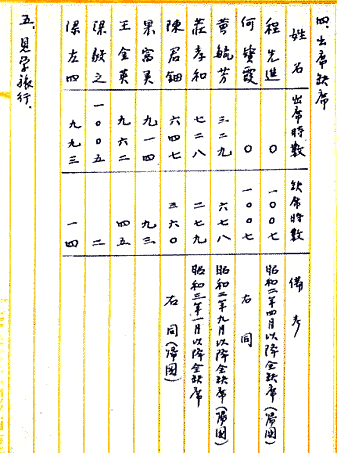 四、出席缺席
姓名 出席時数 缺席時数 備考
程先進 〇 一〇〇七 昭和二年四月以降全缺席(帰国)
何 霞 〇 一〇〇七 右同
黄毓芳 三二九 六七八 昭和二年九月以降全缺席(帰国)
莊孝和 七二八 二七九 昭和三年一月以降全缺席
陳君鈿 六四七 三六〇 右同(帰国)
果富英 九一四 九三
王金英 九六二 四五
梁毅之 一〇〇五 二
梁左四 九九三 一四
五、見学旅行、